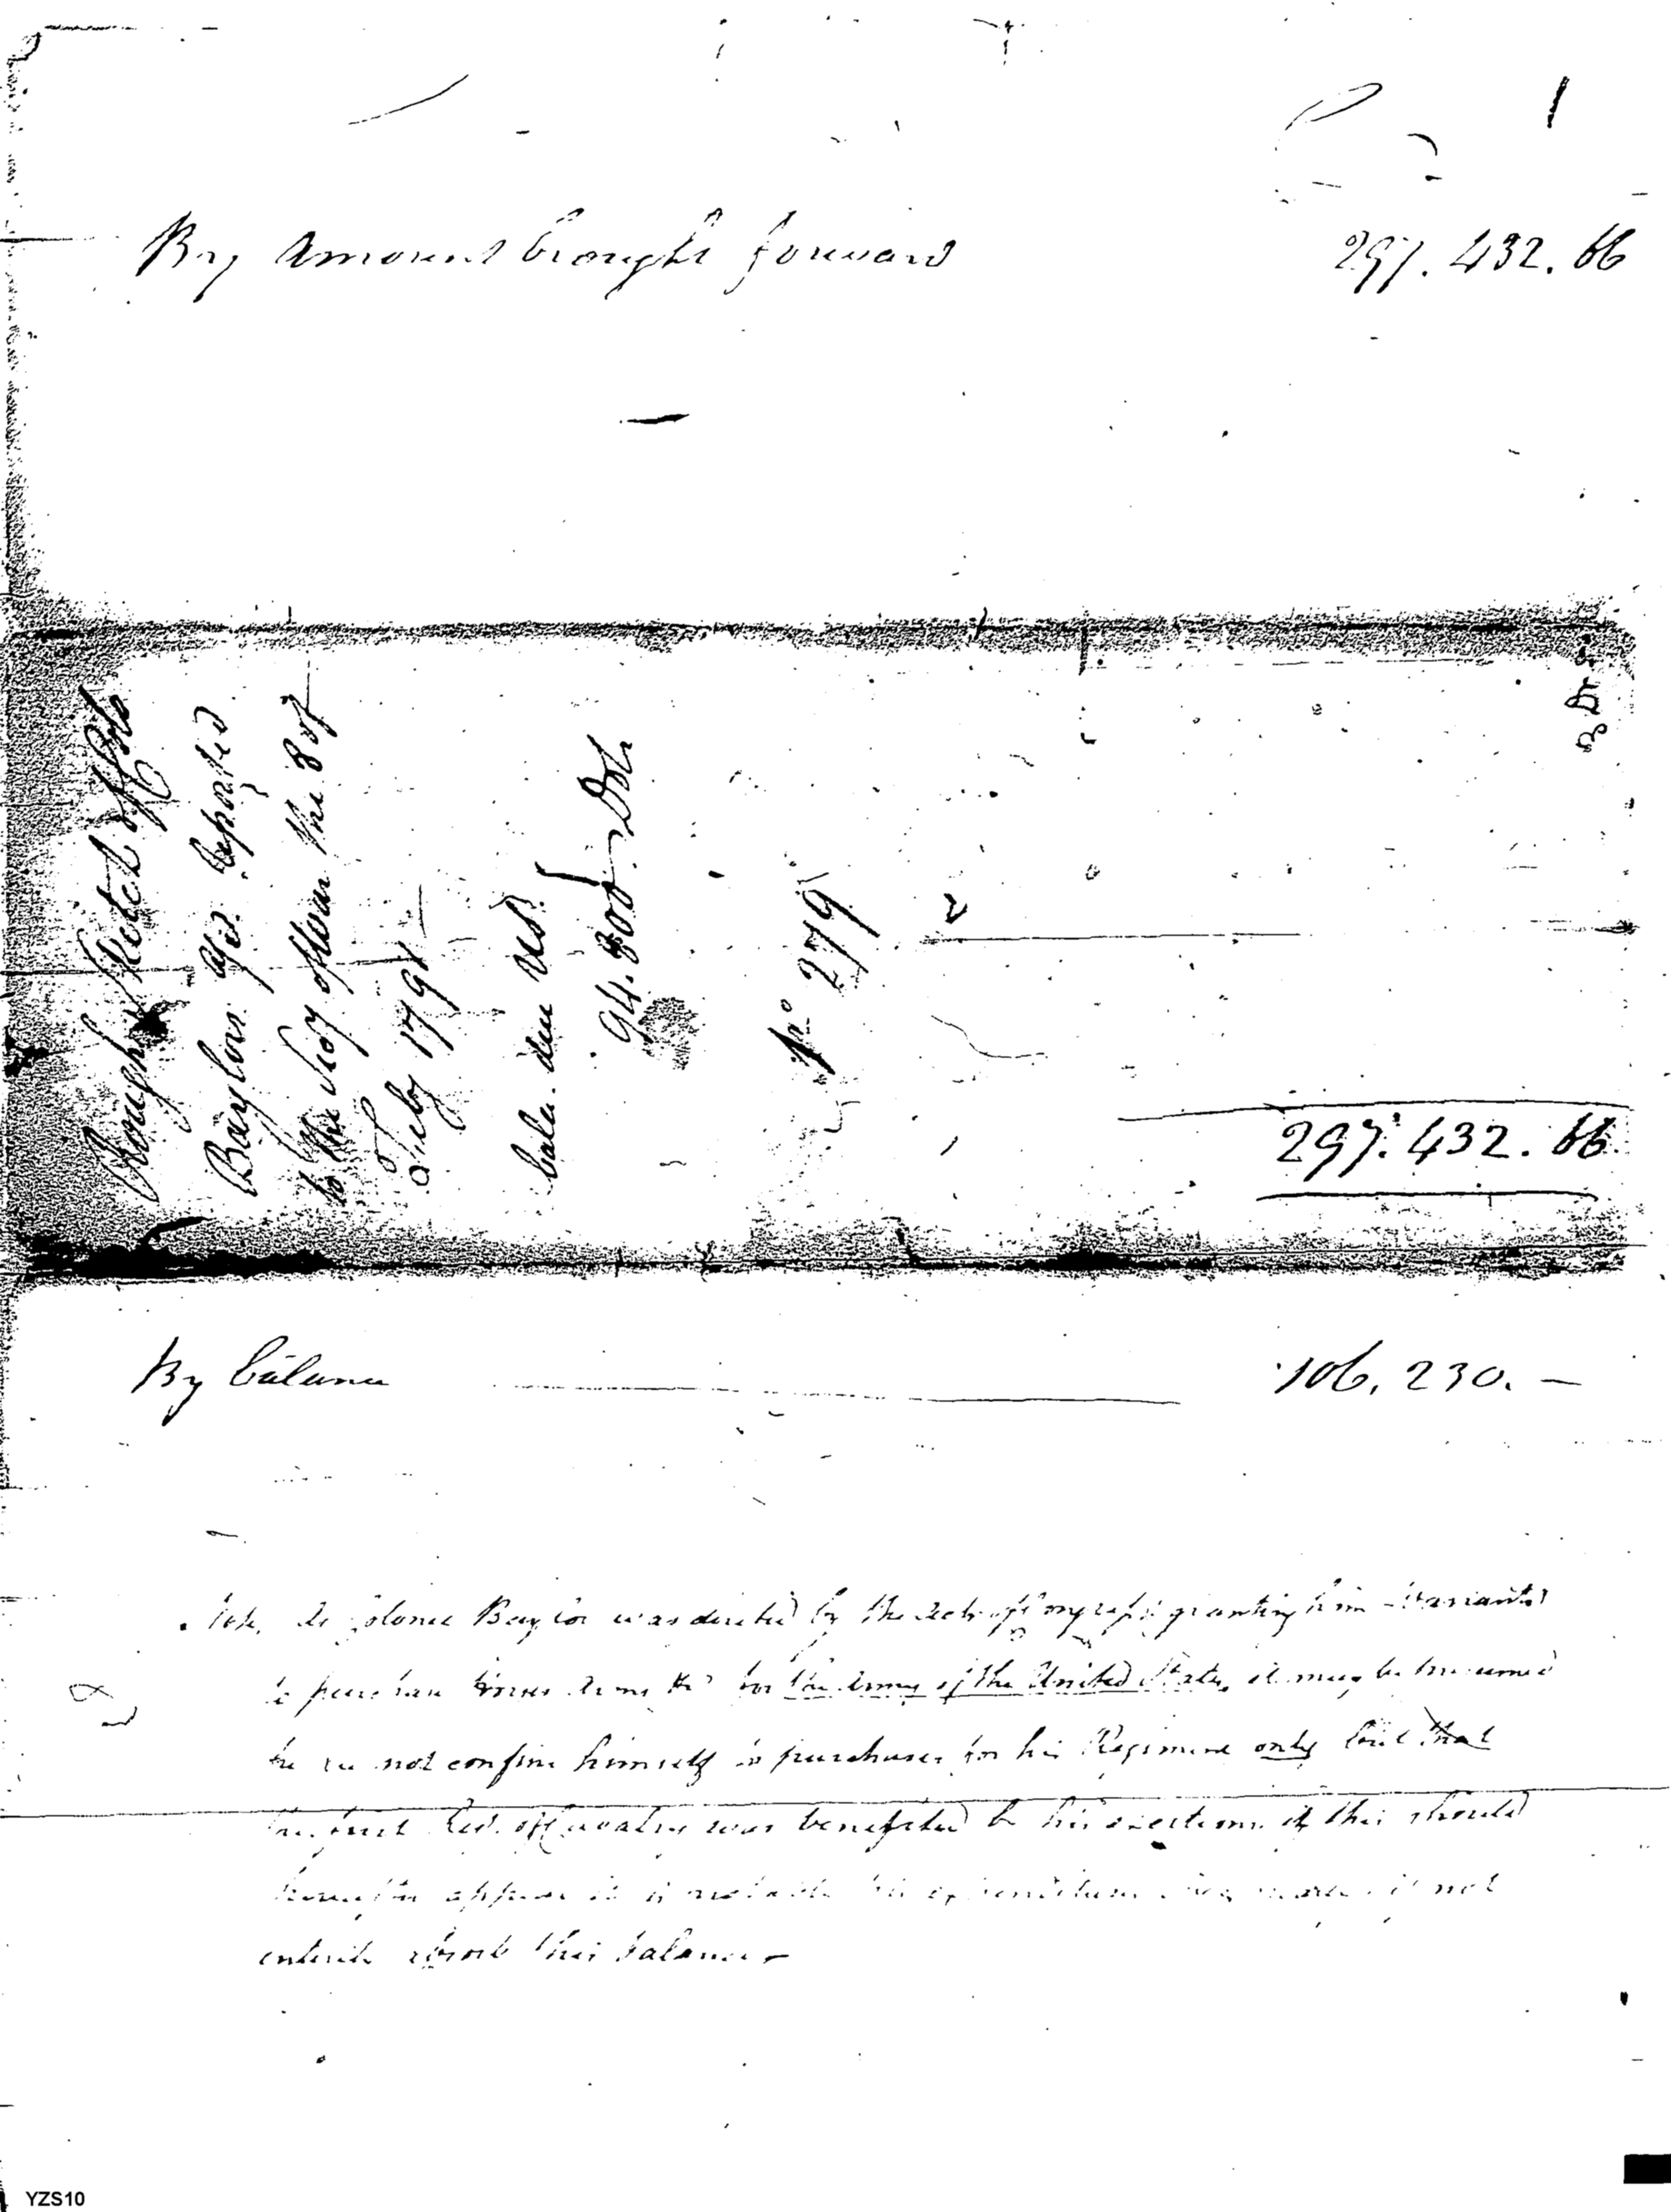 By Amount brought forward 297.432.66
Rough Sketch of Colo
Baylors Acct reported
to the Secy of War the 8 of
Feby 1794
bala. due US.
94.300. Dol.
No 279
297.432.66.
By balance 106.230.—
Note, As Colonel Baylor was directed by the Acts of Congress granting him Warrants
to purchase horses Arms &c for the Army of the United States, it may be presumed
he did not confine himself to purchases for his Regiment only but that
the first Regt. of Cavalry was benefited by his exertions if this should
hereafter appear it is probable his expenditures if not
entirely absorb this balance—
YZS10